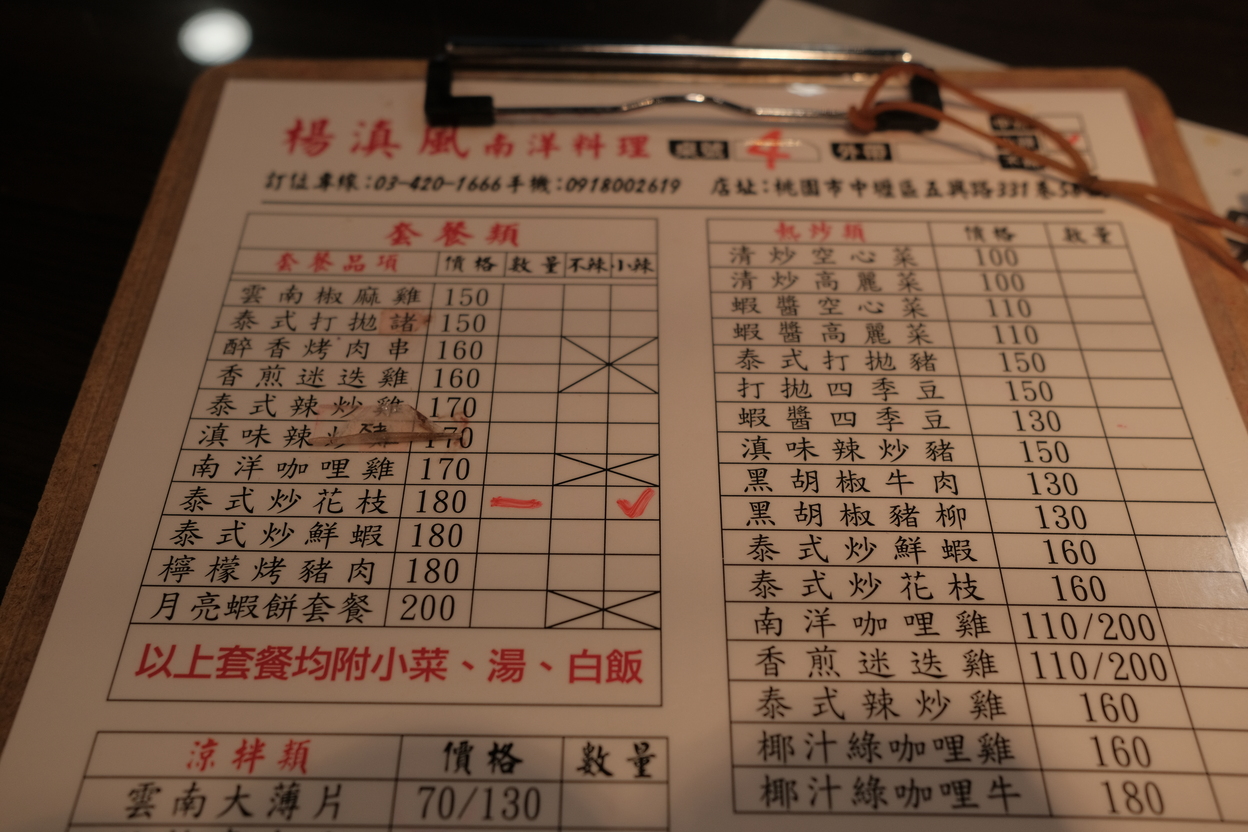 楊滇風南洋料理 桌號 4 外帶
訂位專線:03-420-1666手機:0918002619 店址:桃園市中壢區五興路331巷58
套餐類
套餐品項 價格 數量 不辣 小辣
雲南椒麻雞 150
泰式打拋諸 150
醉香烤肉串 160
香煎迷迭雞 160
泰式辣炒雞 170
滇味辣炒豬 170
南洋咖哩雞 170
泰式炒花枝 180 一 ✓
泰式炒鮮蝦 180
檸檬烤豬肉 180
月亮蝦餅套餐 200
以上套餐均附小菜、湯、白飯
涼拌類 價格 數量
雲南大薄片 70/130
熱炒類 價格 數量
清炒空心菜 100
清炒高麗菜 100
蝦醬空心菜 110
蝦醬高麗菜 110
泰式打拋豬 150
打拋四季豆 150
蝦醬四季豆 130
滇味辣炒豬 150
黑胡椒牛肉 130
黑胡椒豬柳 130
泰式炒鮮蝦 160
泰式炒花枝 160
南洋咖哩雞 110/200
香煎迷迭雞 110/200
泰式辣炒雞 160
椰汁綠咖哩雞 160
椰汁綠咖哩牛 180